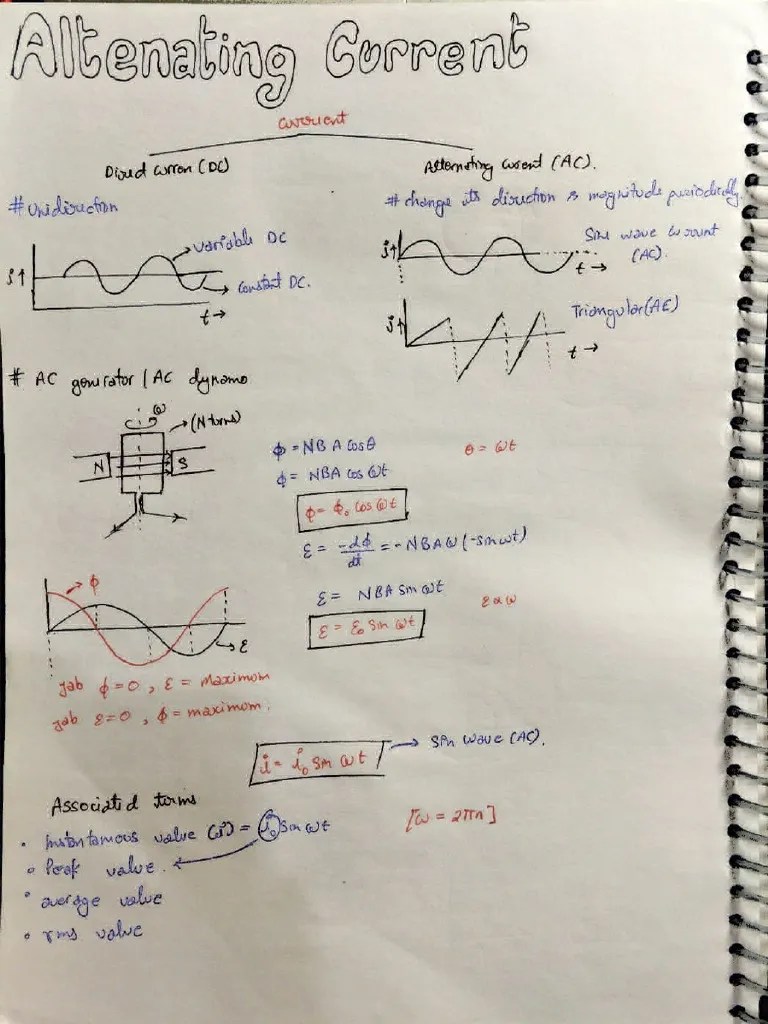 Altenating Current
current
Direct curren (DC)
Alternating current (AC).
# Unidirection
# change its direction & magnitude periodically.
variable DC
i↑
constant DC.
t →
i↑
Sine wave current
(AC).
t →
Triangular (AC)
i↑
t →
# AC generator / AC dynamo
ω
(N turns)
N
S
ϕ = NBA cosθ
θ = ωt
ϕ = NBA cos ωt
ϕ = ϕ₀ cos ωt
ε = -dϕ/dt = -NBAω (-sin ωt)
ε = NBA sin ωt
ε ∝ ω
ε = ε₀ sin ωt
ϕ
ε
jab ϕ=0, ε = Maximum
jab ε=0, ϕ = maximum.
i = i₀ sin ωt
→ Sin wave (AC).
Associated terms
• Instantamous value (i) = i₀ sin ωt
[ω = 2πn]
• Peak value.
• average value
• rms value